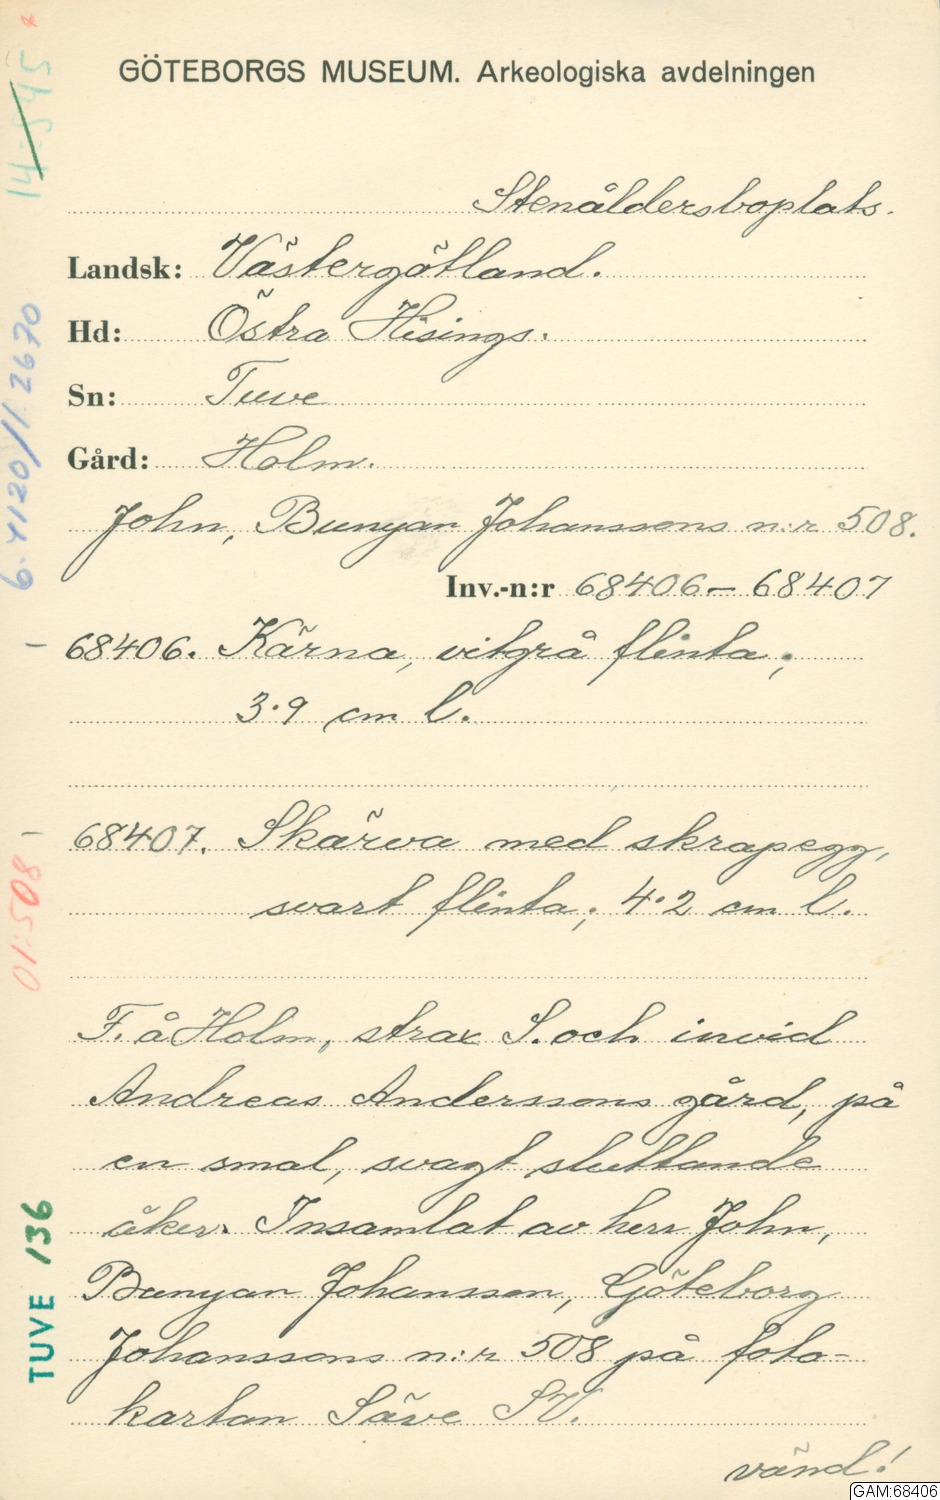 GÖTEBORGS MUSEUM. Arkeologiska avdelningen
Stenåldersboplats.
Landsk: Västergötland.
Hd: Östra Hisings.
Sn: Tuve
Gård: Holm.
John, Bunyan Johanssons n:r 508.
Inv.-n:r 68406–68407
68406. Kärna, vitgrå flinta;
3.9 cm l.
68407. Skärva med skrapegg,
svart flinta; 4.2 cm l.
F. å Holm, strax S. och invid
Andreas Anderssons gård, på
en smal, svagt sluttande
åker. Insamlat av herr John,
Bunyan Johansson, Göteborg
Johanssons n:r 508 på foto-
kartan Säve SV.
vänd!
14:545 *
6.4120/1.2670
01:508
TUVE 136
GAM:68406